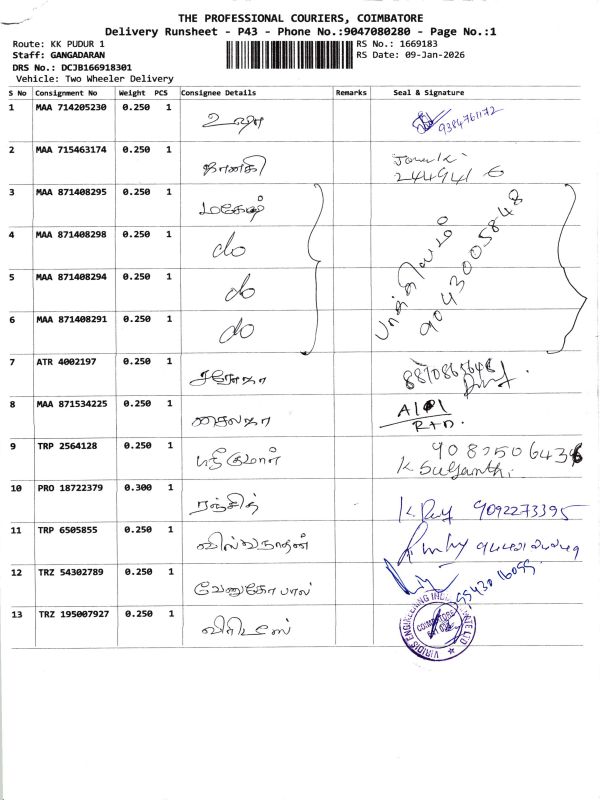 THE PROFESSIONAL COURIERS, COIMBATORE
Delivery Runsheet - P43 - Phone No.:9047080280 - Page No.:1
Route: KK PUDUR 1
RS No.: 1669183
Staff: GANGADARAN
RS Date: 09-Jan-2026
DRS No.: DCJB166918301
Vehicle: Two Wheeler Delivery
S No Consignment No Weight PCS Consignee Details Remarks Seal & Signature
1 MAA 714205230 0.250 1 உஷா 9384761172
2 MAA 715463174 0.250 1 ஜானகி Janaki
244941 6
3 MAA 871408295 0.250 1 மகேஷ்
4 MAA 871408298 0.250 1 do
5 MAA 871408294 0.250 1 do
6 MAA 871408291 0.250 1 do
9043005848
7 ATR 4002197 0.250 1 சரோஜா
8 MAA 871534225 0.250 1 சைலஜா
RTD.
9 TRP 2564128 0.250 1 ஸ்ரீகுமார்
K. Suganthi
10 PRO 18722379 0.300 1 ரஞ்சித் 9092273395
11 TRP 6505855 0.250 1 வில்வநாதன்
12 TRZ 54302789 0.250 1 வேணுகோபால்
13 TRZ 195007927 0.250 1
VIRIDIS ENGINEERING
COIMBATORE